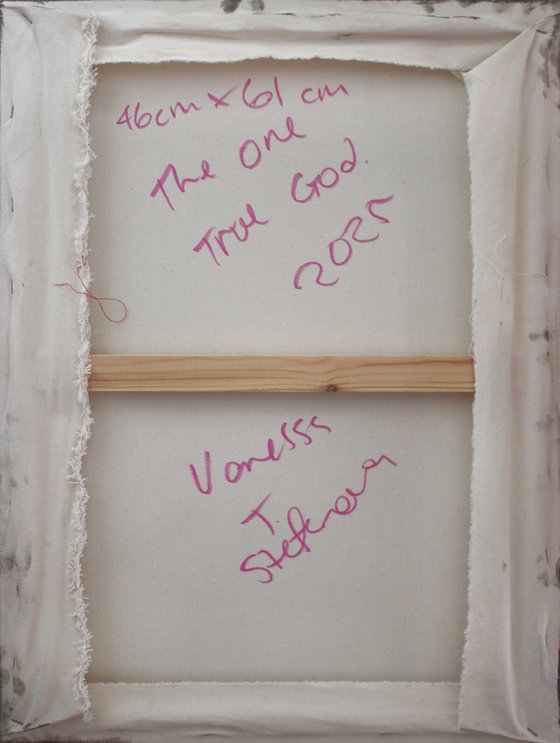 46cm x 61 cm
The One
True God.
2025
Vanessa
T.
Stefanova